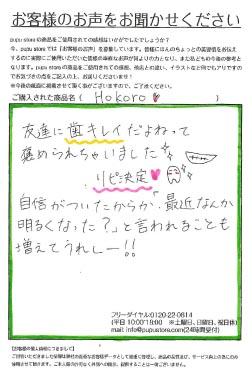 お客様のお声をお聞かせください
pupu store の商品をご使用されての感想はいかがでしたでしょうか？
今 pupu store では「お客様のお声」を募集しています。皆様にほんのちょっとの美習慣をお伝え
するのに実際にご使用いただいた皆様の率直なお声が何よりの力となり、また私どもの今後の参考と
なります。pupu store の商品をご使用されての感想、他店との違い、イラストなど何でもアリですの
でお気づきの点をご記入の上、お送りくださいませ！
ご購入された商品名（ Hokoro ♡ ）
友達に歯キレイだよねって
褒められちゃいました
リピ決定♥
自信がついたからか「最近なんか
明るくなった？」と言われることも
増えてうれしー!!
フリーダイヤル0120-22-0614
(平日 10:00~18:00 ※土曜日、日曜日、祝日休)
mail: info@pupustore.com(24時間受付)